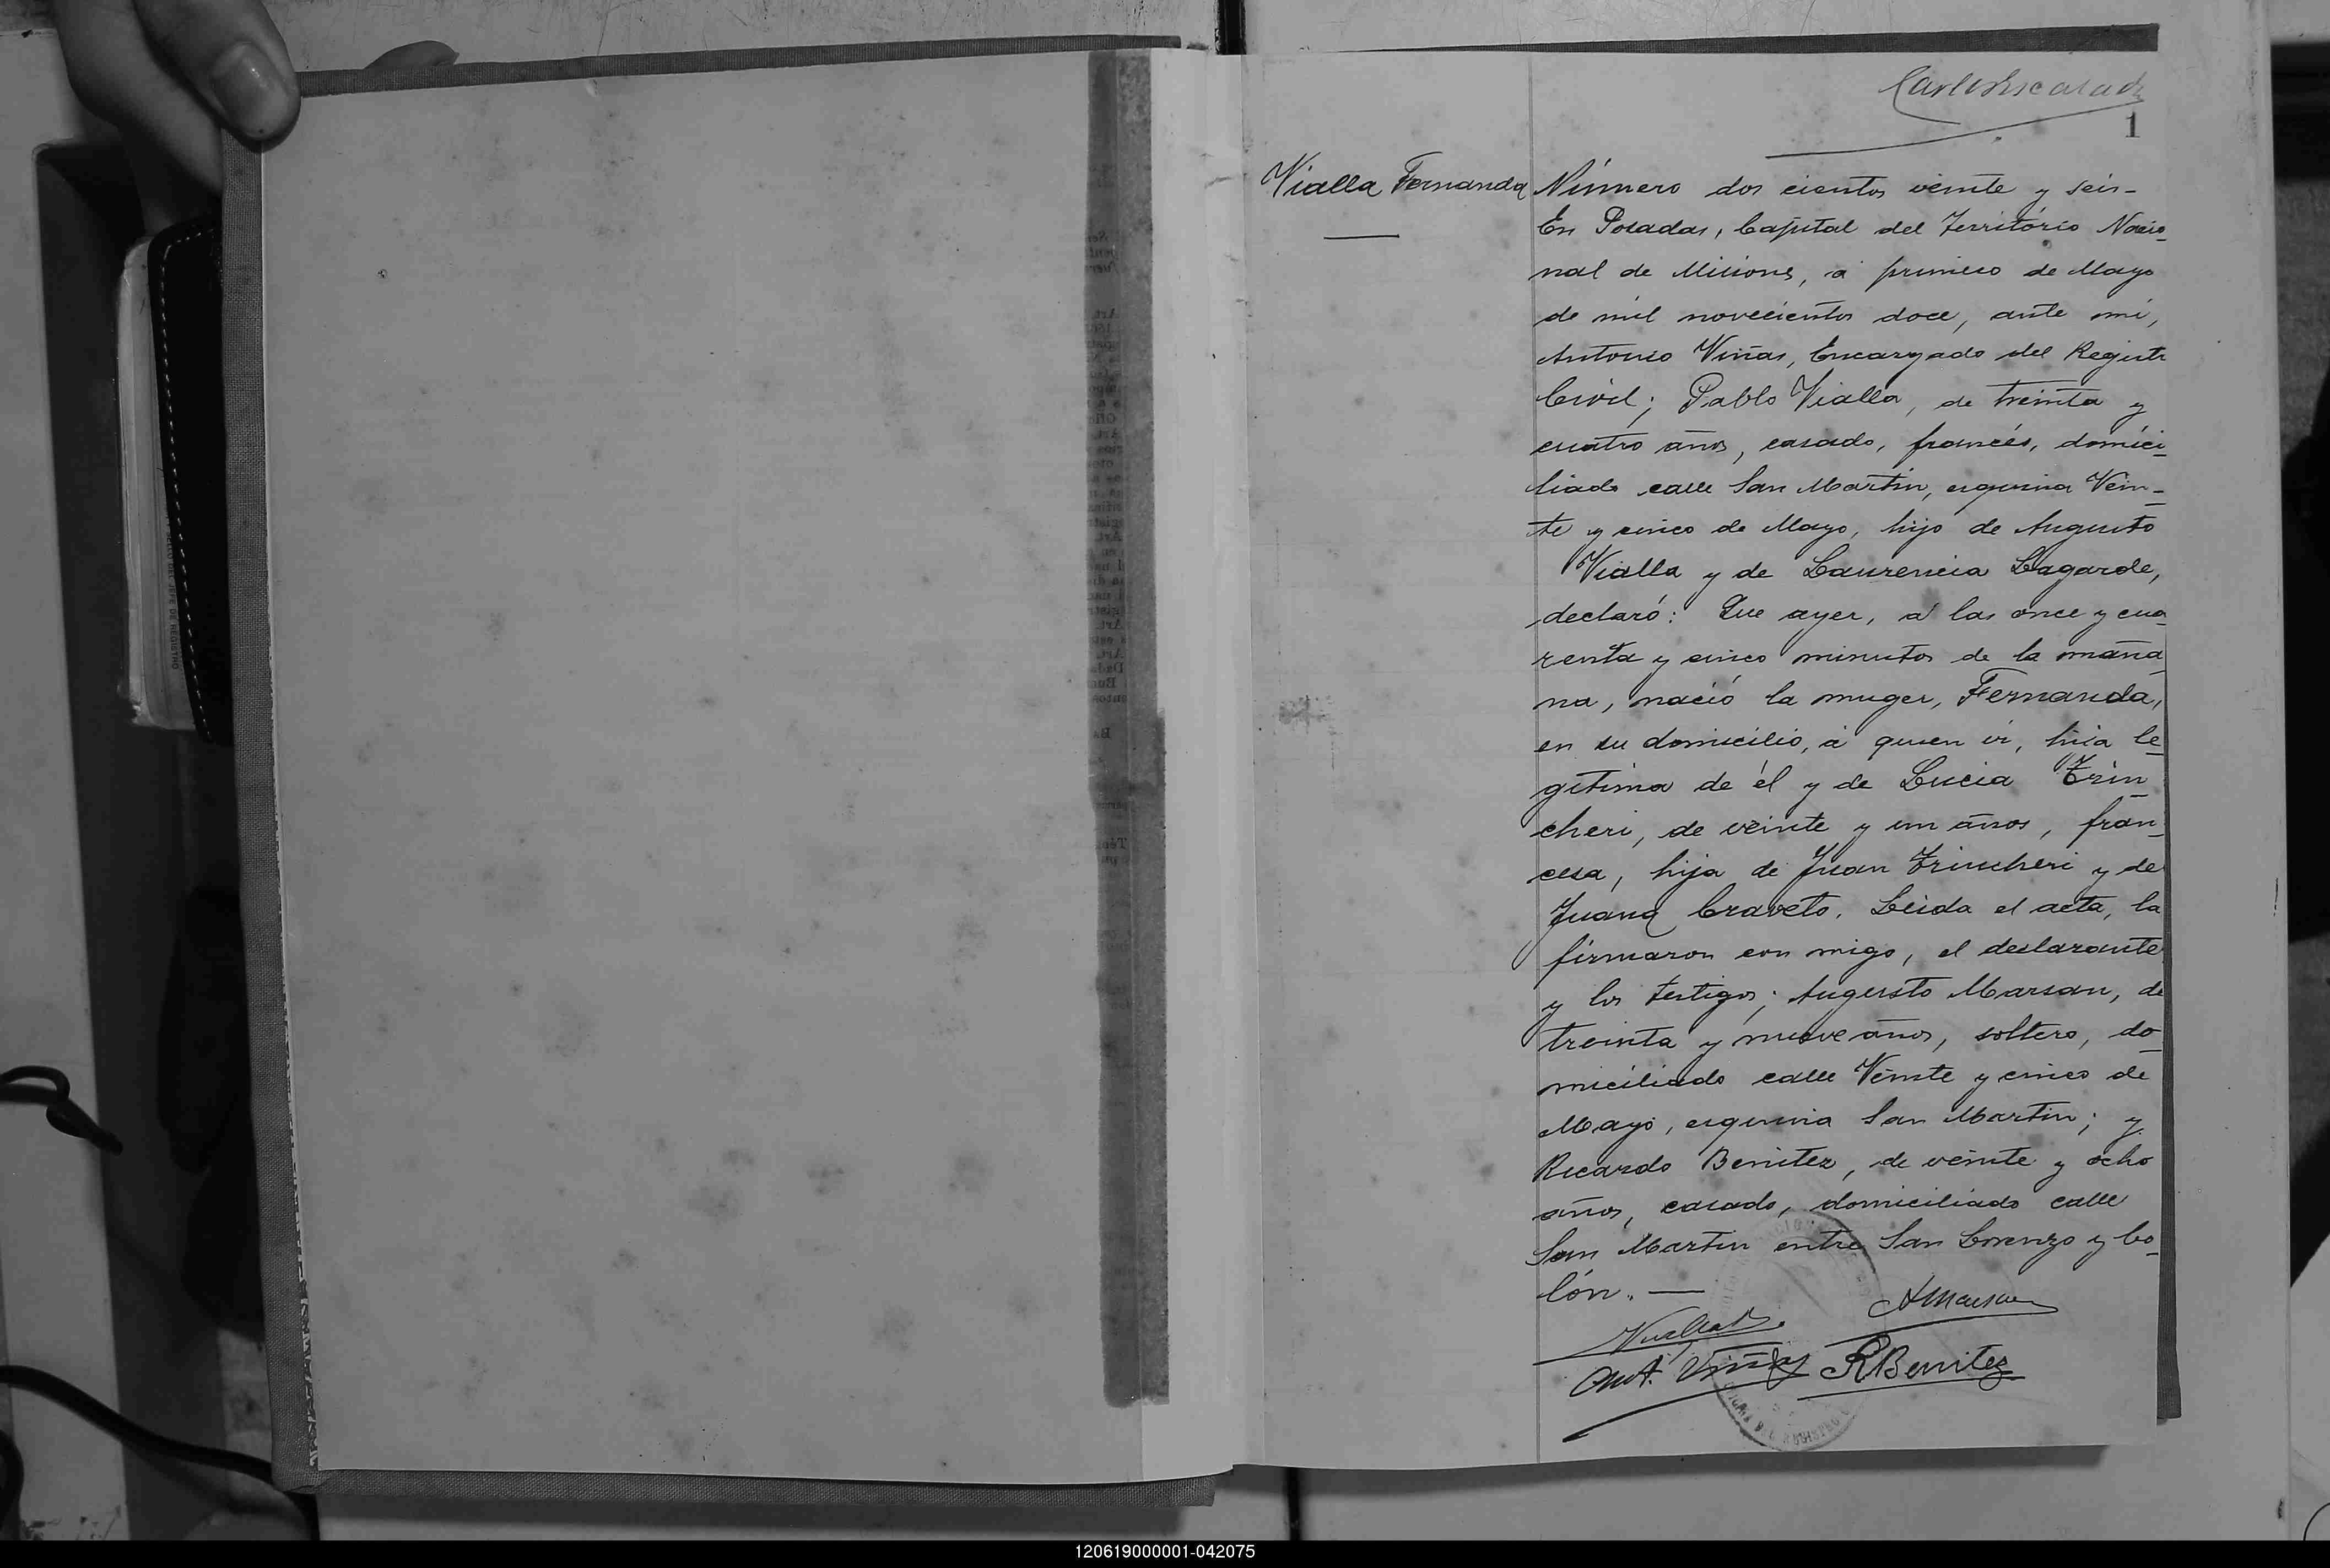 1
Vialla Fernanda
Número dos cientos veinte y seis-
En Posadas, Capital del Território Nacio-
nal de Misiones, á primero de Mayo
de mil novecientos doce, ante mi,
Antonio Viñas, Encargado del Registr
Civil; Pablo Vialla, de treinta y
cuatro años, casado, francés, domici-
liado calle San Martin, esquina Vein-
te y cinco de Mayo, hijo de Augusto
Vialla y de Laurencia Lagarde,
declaró: Que ayer, á las once y cua-
renta y cinco minutos de la maña-
na, nació la muger, Fernanda,
en su domicilio, á quien vi, hija le-
gitima de él y de Lucia Trin-
cheri, de veinte y un años, fran-
cesa, hija de Juan Trincheri y de
Juana Craveto. Leida el acta, la
firmaron con migo, el declarante
y los testigos; Augusto Marsan, de
treinta y nueve años, soltero, do-
miciliado calle Veinte y cinco de
Mayo, esquina San Martin; y
Ricardo Benitez, de veinte y ocho
años, casado, domiciliado calle
San Martin entre San Lorenzo y Co-
lón. —
Ant. Viñas RBenitez
DEL REGISTRO
120619000001-042075